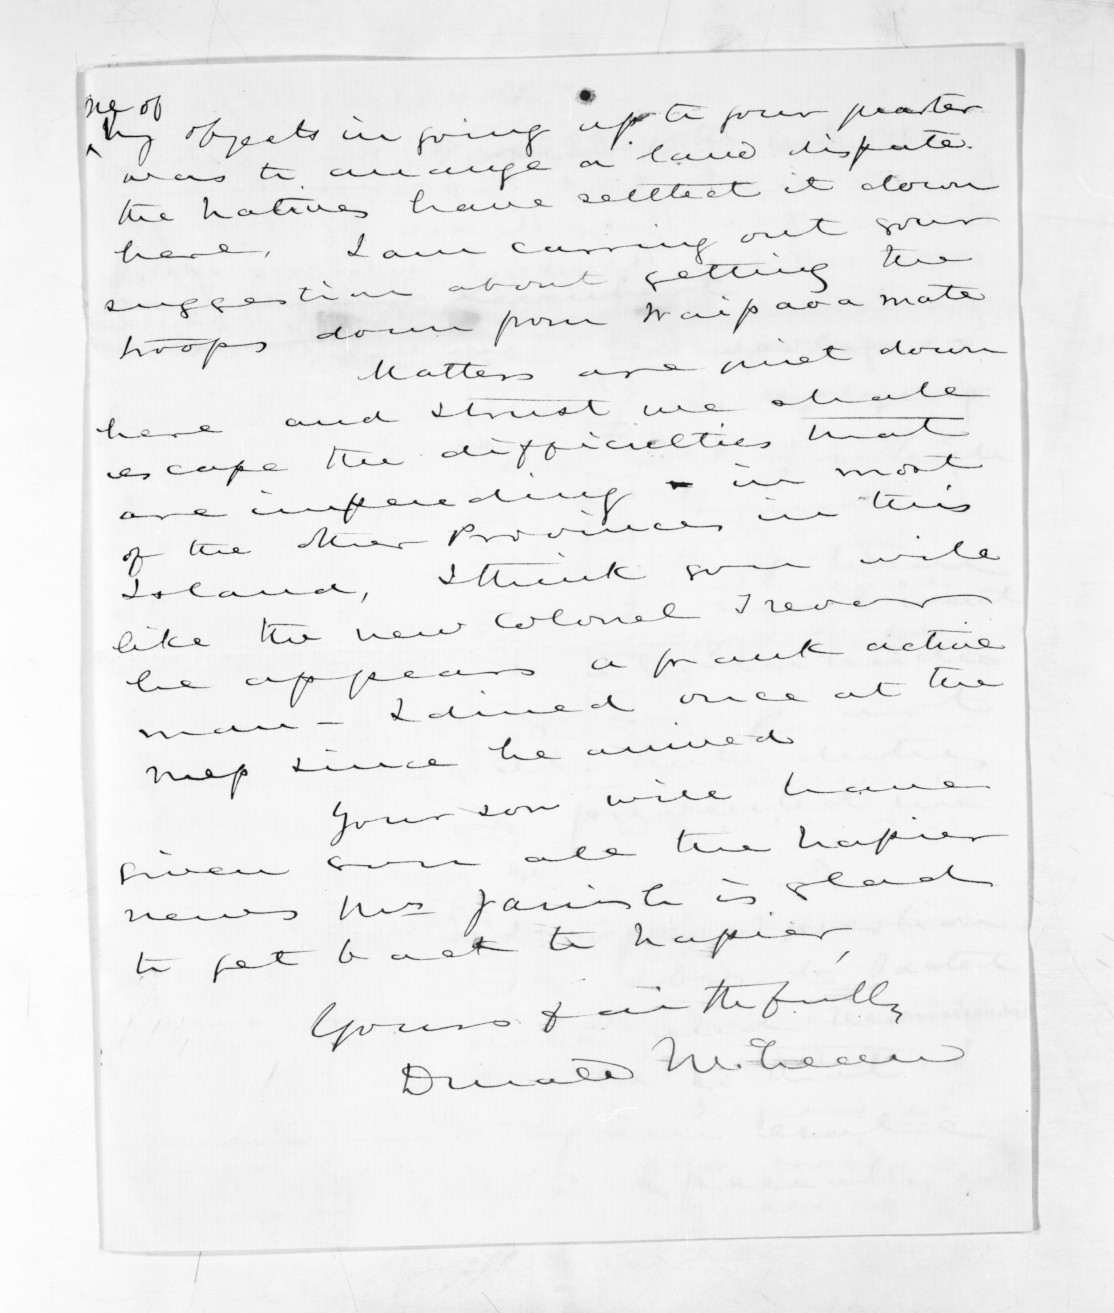 ne of
my objects in going up to your quarter
was to arrange a land dispute.
the Natives have settled it down
here. I am carring out your
suggestion about getting the
troops down from Waipaoa mate
Matters are quiet down
here and I trust we shall
escape the difficulties that
are impending - in most
of the other Provinces in this
Island, I think you will
like the new Colonel Trevor
he appears a frank active
man - I dined once at the
mess since he arrived
Your son will have
given you all the Napier
news Mrs is glad
to get back to Napier,
Yours faithfully
Donald McLean